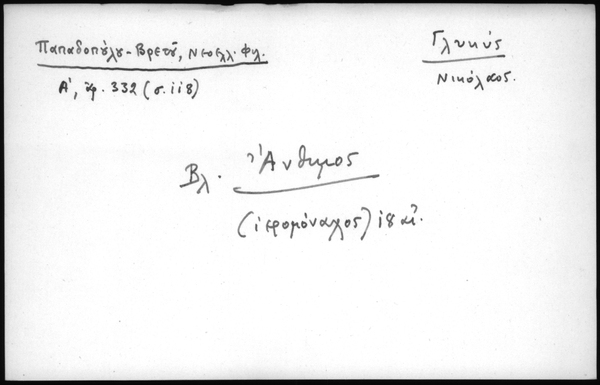 Παπαδοπούλου-Βρετοῦ, Νεοελλ. Φιλ.
Α', ἀρ. 332 (σ. 118)
Γλυκύς
Νικόλαος.
Βλ. Ἄνθιμος
(ἱερομόναχος) 18 αἰ.